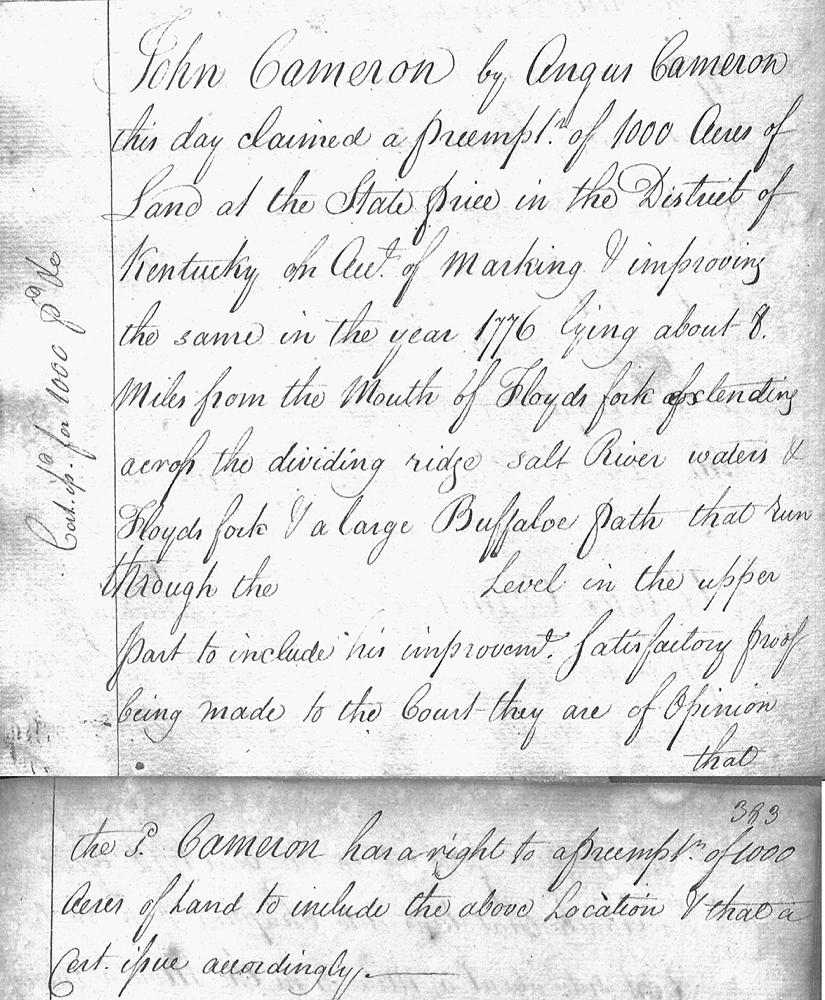 John Cameron by Angus Cameron
this day claimed a preempt.n of 1000 Acres of
Land at the State price in the District of
Kentucky on Acct. of Marking & improving
the same in the year 1776 lying about 8.
Miles from the Mouth of Floyds fork extending
across the dividing ridge salt River waters &
Floyds fork & a large Buffaloe path that run
through the Level in the upper
part to include his improvemt. Satisfactory proof
being made to the Court they are of Opinion
that
Cert. iss.d for 1000
383
the s.d Cameron has a right to a preempt.n of 1000
Acres of Land to include the above Location & that a
Cert. issue accordingly.